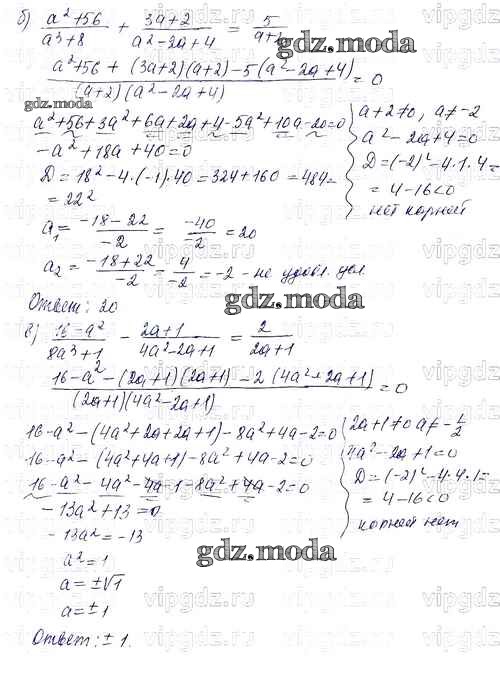 б) (a²+56)/(a³+8) + (3a+2)/(a²-2a+4) = 5/(a+2)
(a²+56 + (3a+2)(a+2) - 5(a²-2a+4))/((a+2)(a²-2a+4)) = 0
a²+56+3a²+6a+2a+4-5a²+10a-20=0
-a²+18a+40=0
D = 18²-4·(-1)·40=324+160=484=
= 22²
a₁ = (-18-22)/-2 = -40/-2 = 20
a₂ = (-18+22)/-2 = 4/-2 = -2 - не удовл. усл.
a+2≠0, a≠-2
a²-2a+4=0
D=(-2)²-4·1·4=
= 4-16<0
нет корней
Ответ: 20
в) (16-a²)/(8a³+1) - (2a+1)/(4a²-2a+1) = 2/(2a+1)
(16-a² - (2a+1)(2a+1) - 2(4a²+2a+1))/((2a+1)(4a²-2a+1)) = 0
16-a²-(4a²+2a+2a+1)-8a²+4a-2=0
16-a²-(4a²+4a+1)-8a²+4a-2=0
16-a²-4a²-4a-1-8a²+4a-2=0
-13a²+13=0
-13a²=-13
a²=1
a=±√1
a=±1
2a+1≠0 a≠-1/2
4a²-2a+1=0
D=(-2)²-4·4·1=
= 4-16<0
корней нет
Ответ: ±1.
gdz.moda
gdz.moda
gdz.moda
gdz.moda
gdz.moda
vipgdz.ru